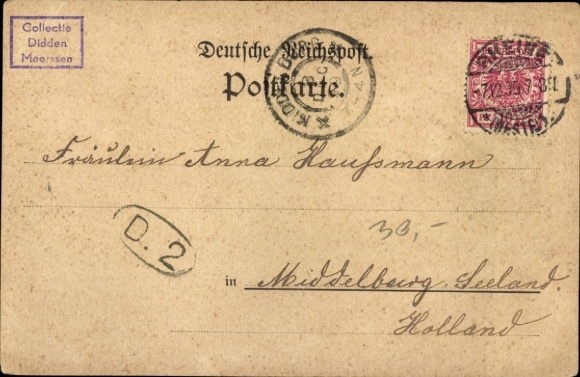 Collectie
Didden
Meerssen
Deutsche Reichspost.
Postkarte.
RHEINE
(WESTF.)
Fräulein Anna Haufsmann
D. 2
30,-
in Middelburg. Seeland.
Holland